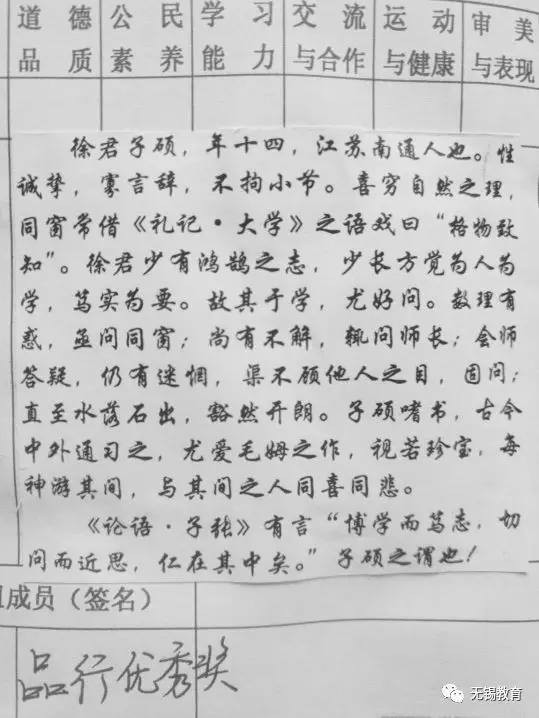 道德 公民 学习 交流 运动 审美
品质 素养 能力 与合作 与健康 与表现
徐君子硕，年十四，江苏南通人也。性
诚挚，寡言辞，不拘小节。喜穷自然之理，
同窗常借《礼记·大学》之语戏曰“格物致
知”。徐君少有鸿鹄之志，少长方觉为人为
学，笃实为要。故其于学，尤好问。数理有
惑，亟问同窗；尚有不解，辄问师长；会师
答疑，仍有迷惘，渠不顾他人之目，固问；
直至水落石出，豁然开朗。子硕嗜书，古今
中外通习之，尤爱毛姆之作，视若珍宝，每
神游其间，与其间之人同喜同悲。
《论语·子张》有言“博学而笃志，切
问而近思，仁在其中矣。”子硕之谓也！
成员（签名）
品行优秀奖
无锡教育